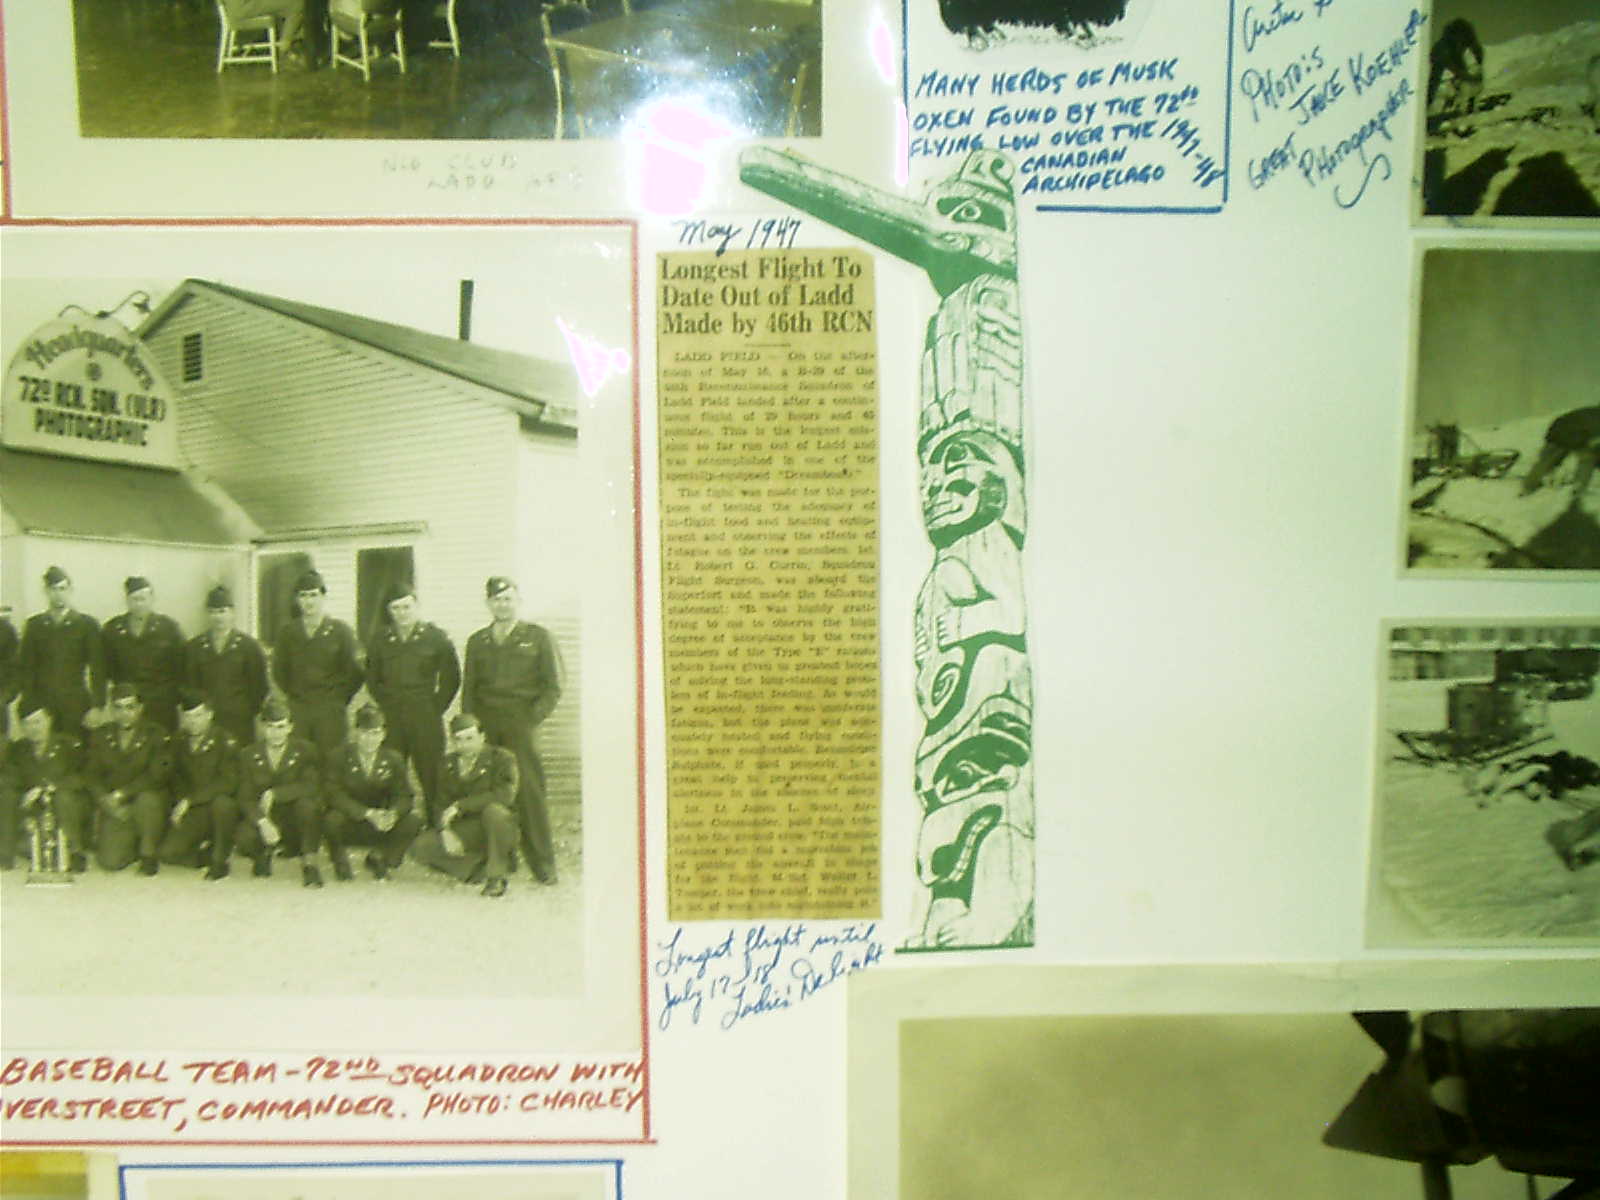 NCO CLUB
LADD AFB
MANY HERDS OF MUSK
OXEN FOUND BY THE 72ND
FLYING LOW OVER THE 1947-48
CANADIAN
ARCHIPELAGO
PHOTO'S
JAKE KOEHLER
GREAT
PHOTOGRAPHER
Headquarters
72D RCN. SQN. (VLR)
PHOTOGRAPHIC
BASEBALL TEAM - 72ND SQUADRON WITH
VERSTREET, COMMANDER. PHOTO: CHARLEY
May 1947
Longest Flight To
Date Out of Ladd
Made by 46th RCN
LADD FIELD — On the after-
noon of May 16, a B-29 of the
46th Reconnaissance Squadron of
Ladd Field landed after a contin-
uous flight of 29 hours and 45
minutes. This is the longest mis-
sion so far run out of Ladd and
was accomplished in one of the
specially-equipped "Dreamboats."
The fight was made for the pur-
pose of testing the adequacy of
in-flight food and heating equip-
ment and observing the effects of
fatigue on the crew members. 1st.
Lt. Robert G. Currin, Squadron
Flight Surgeon, was aboard the
Superfort and made the following
statement: "It was highly grati-
fying to me to observe the high
degree of acceptance by the crew
members of the Type "E" rations
which have given us greatest hopes
of solving the long-standing prob-
lem of in-flight feeding. As would
be expected, there was moderate
fatigue, but the plane was ade-
quately heated and flying condi-
tions were comfortable. Benzedrine
Sulphate, if used properly, is a
great help in preserving mental
alertness in the absence of sleep.
1st. Lt. James L. Air-
plane Commander, paid high trib-
ute to the ground crew. "The main-
tenance men did a marvelous job
of putting the aircraft in shape
for the flight. M/Sgt. Walter L.
the crew chief, really puts
a lot of work into maintaining it."
Longest flight until
July 17-18
Ladies' Delight